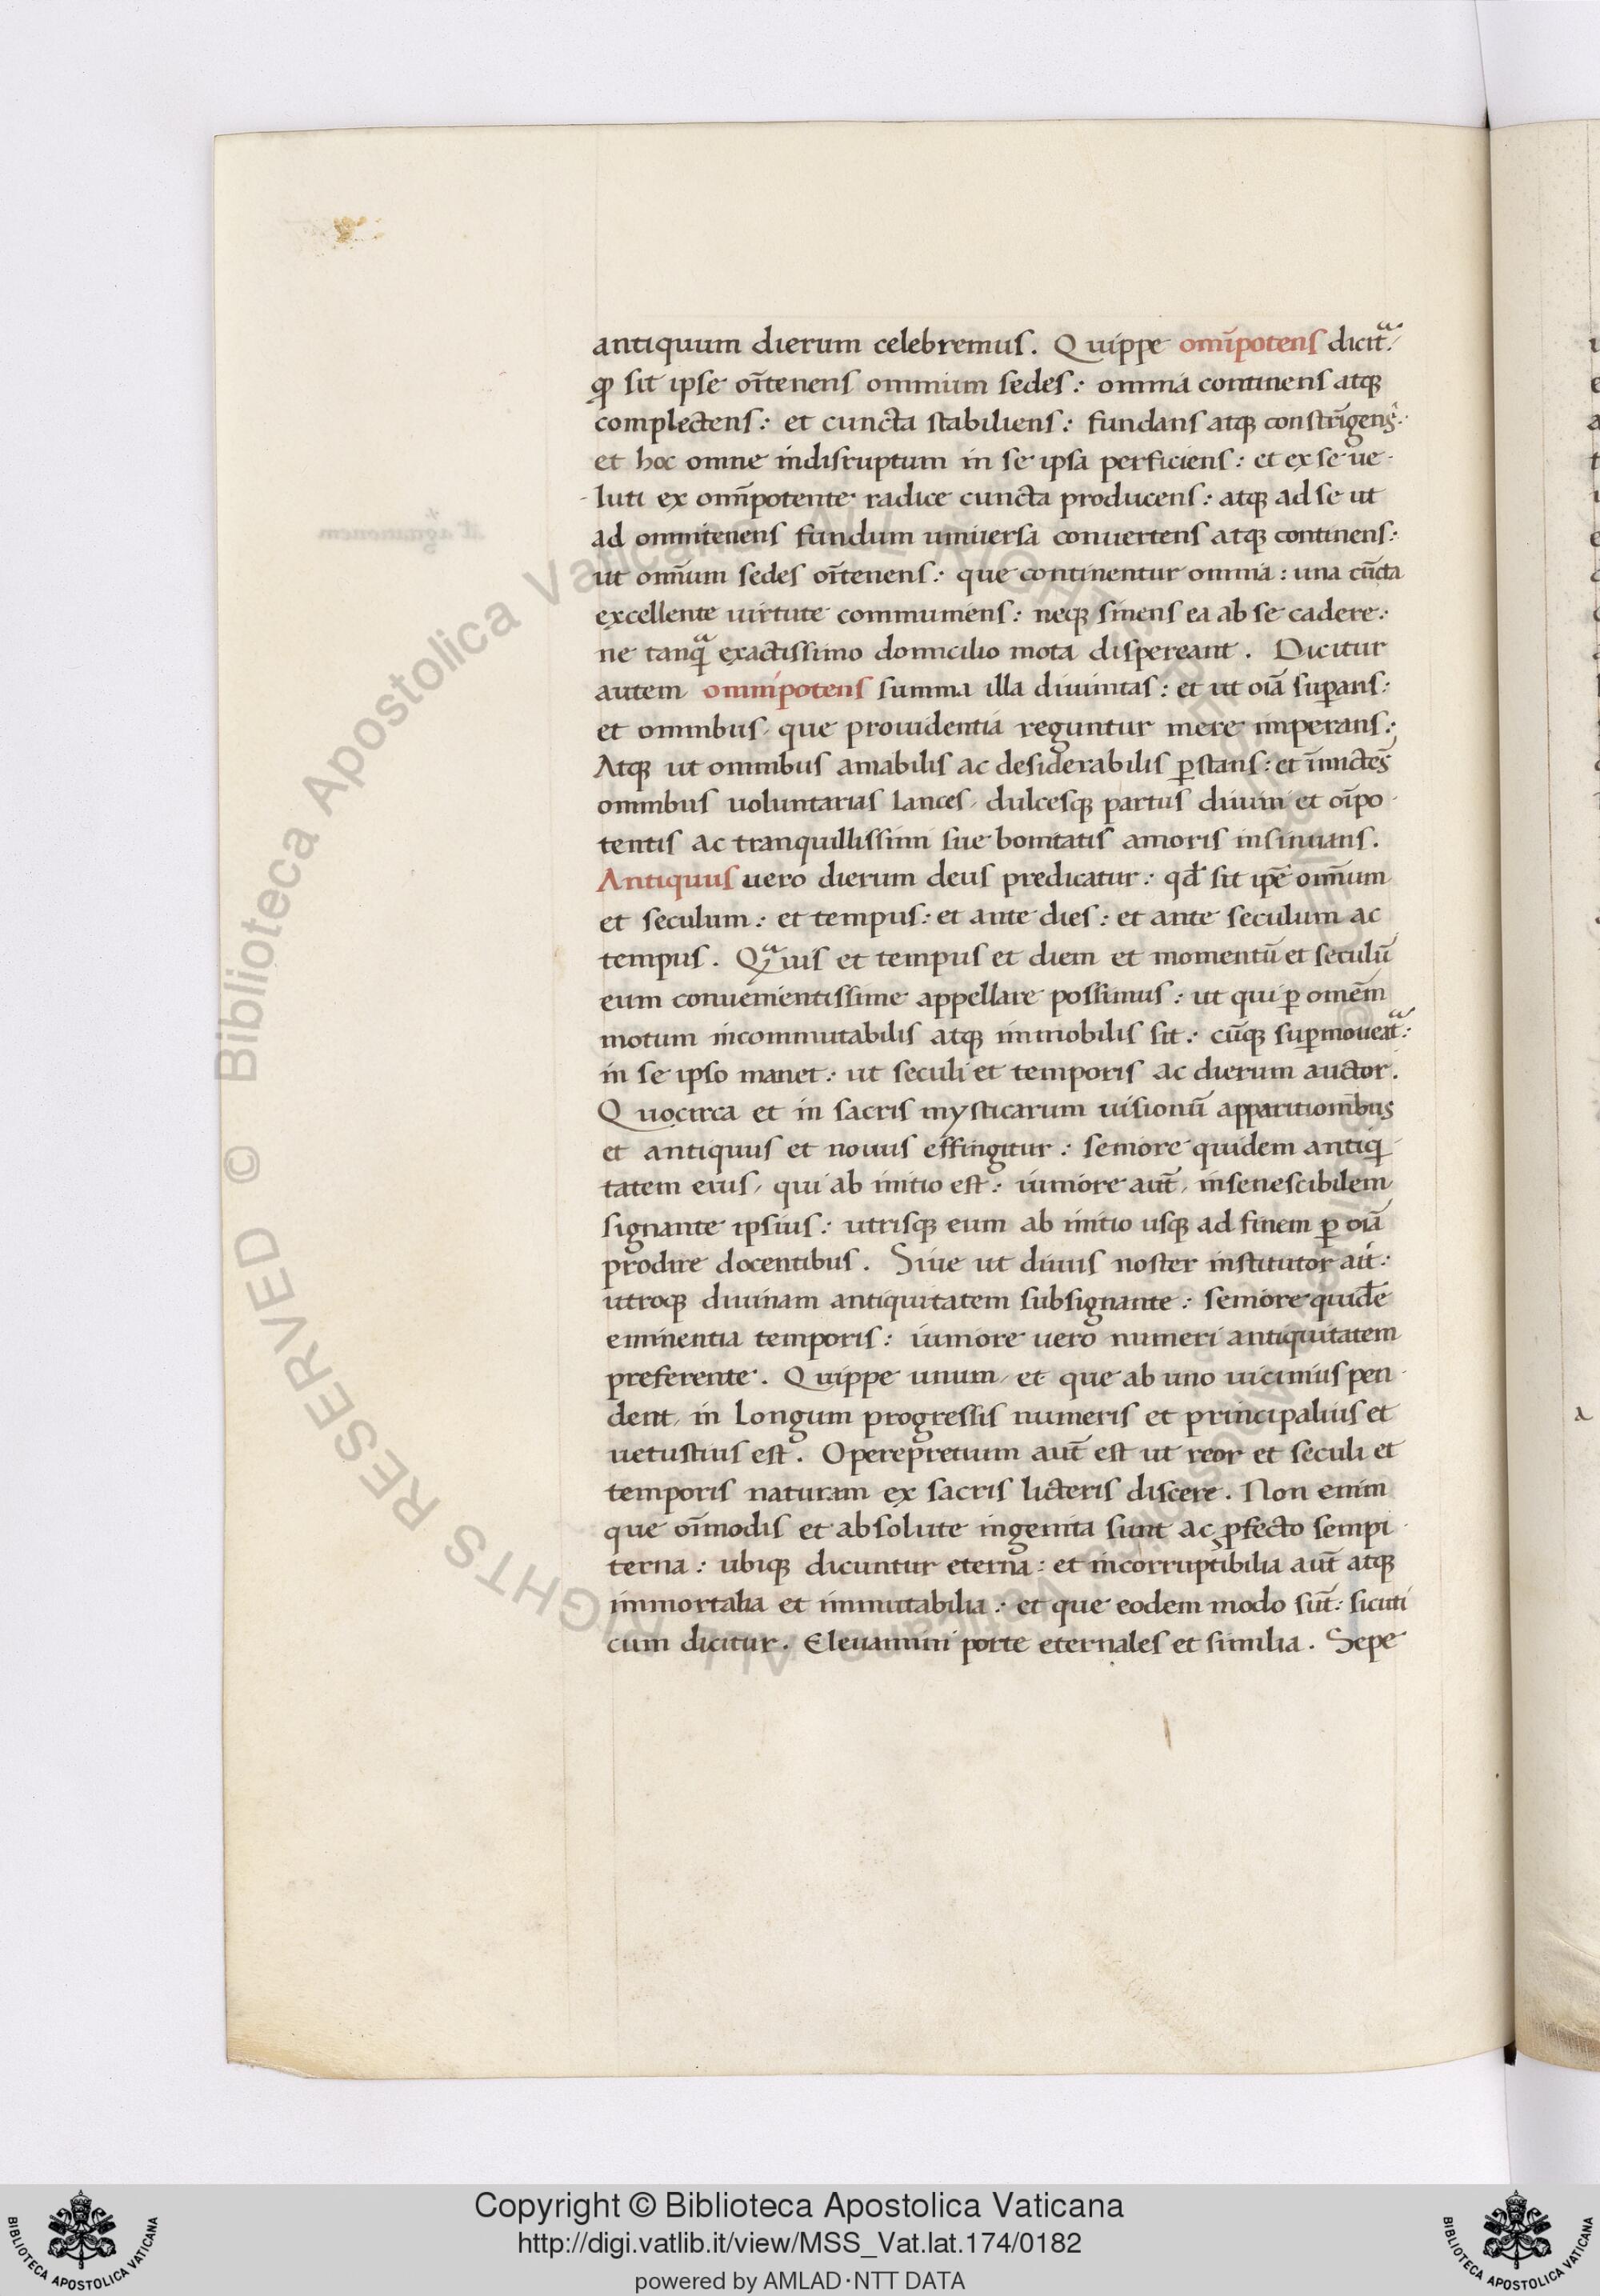 antiquum dierum celebremus. Quippe om̅ipotens dicit̅ᵃ:
ꝙ sit ipse oi̅tenens omnium sedes: omnia continens atqꝫ
complectens: et cuncta stabiliens: fundans atqꝫ constri̅gens:
et hoc omne indisruptum in se ipsa perficiens: et ex se ue-
-luti ex om̅ipotente radice cuncta producens: atqꝫ ad se ut
ad omnitenens fundum uniuersa conuertens atqꝫ continens:
ut omn̅um sedes oi̅tenens: que continentur omnia: una cu̅cta
excellente uirtute communiens: neqꝫ sinens ea ab se cadere:
ne tanqᵃ̅ exactissimo domicilio mota dispereant. Dicitur
autem omnipotens summa illa diuinitas: et ut oia̅ suꝑans:
et omnibus, que prouidentia reguntur mere imperans:
Atqꝫ ut omnibus amabilis ac desiderabilis ꝑstans: et i̅niicte̅s
omnibus uoluntarias lances, dulcesqꝫ partus diuini et oi̅po-
tentis ac tranquillissimi sue bonitatis amoris insinuans.
Antiquus uero dierum deus predicatur: qd̅ sit ip̅e omn̅um
et seculum: et tempus: et ante dies: et ante seculum ac
tempus. Qᵃ̅uis et tempus et diem et momentu̅ et seculu̅
eum conuenientissime appellare possimus: ut qui ꝑ ome̅m
motum incommutabilis atqꝫ immobilis sit: cu̅qꝫ suꝑmoueat̅ᵃ:
in se ipso manet: ut seculi et temporis ac dierum auctor.
Quocirca et in sacris mysticarum uisionu̅ apparitionib̅us
et antiquus et nouus effingitur: seniore quidem antiqi-
tatem eius, qui ab initio est: iuniore aut̅, insenescibilem
signante ipsius: utrisqꝫ eum ab initio usqꝫ ad finem ꝑ oia̅
prodire docentibus. Siue ut diuus noster institutor ait:
utroqꝫ diuinam antiquitatem subsignante: seniore quide̅
eminentia temporis: iuniore uero numeri antiquitatem
preferente. Quippe unum, et que ab uno uicinius pen-
dent, in longum progressis numeris et principalius et
uetustius est. Operepretium aut̅ est ut reor et seculi et
temporis naturam ex sacris licteris discere. Non enim
que oi̅modis et absolute ingenita sunt ac ꝓfecto sempi-
terna: ubiqꝫ dicuntur eterna: et incorruptibilia aut̅ atqꝫ
immortalia et immutabilia: et que eodem modo su̅t: sicuti
cum dicitur. Eleuamini porte eternales et similia. Sepe
© Biblioteca Apostolica Vaticana ALL RIGHTS RESERVED
Copyright © Biblioteca Apostolica Vaticana
http://digi.vatlib.it/view/MSS_Vat.lat.174/0182
powered by AMLAD·NTT DATA
BIBLIOTECA APOSTOLICA VATICANA
BIBLIOTECA APOSTOLICA VATICANA